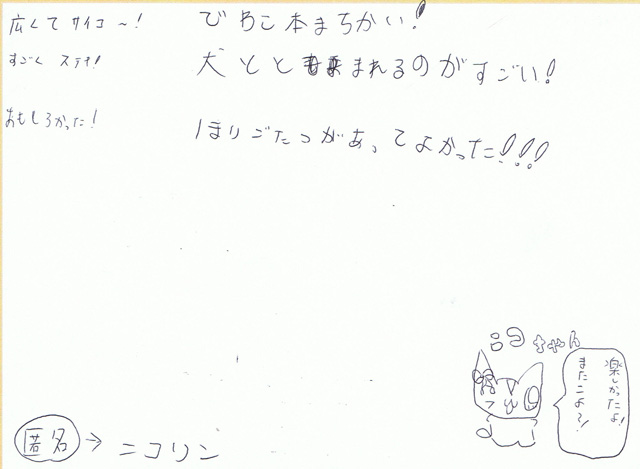 広くてサイコ～!
すごくステキ!
おもしろかった!
びわこ本まちかい!
犬とと まれるのがすごい!
ほりごたつがあってよかった!!!
ちゃん
楽しかったよ!
またこよ～!
匿名→ニコリン